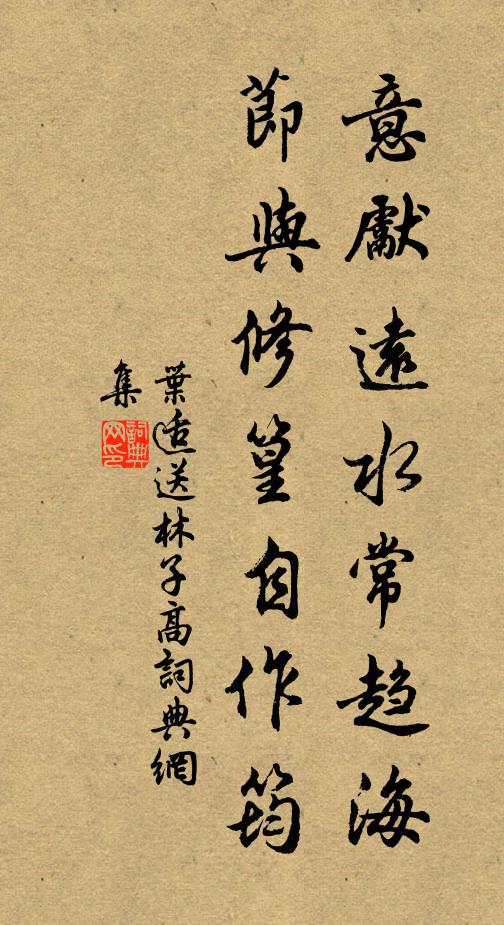 意獻遠水常趨海
節與修篁自作筠
葉適送林子高詞典網
集
詞典网印